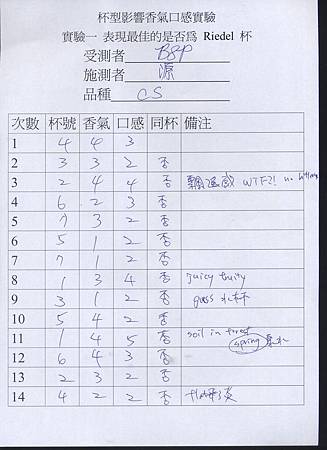 杯型影響香氣口感實驗
實驗一 表現最佳的是否爲 Riedel 杯
受測者 BSP
施測者 源
品種 CS
次數 杯號 香氣 口感 同杯 備注
1 4 4 3
2 3 3 2 否
3 2 4 4 否 WTF?! no
4 6 2 3 否
5 7 3 2 否
6 5 1 2 否
7 7 1 2 否
8 1 3 4 否 juicy fruity
9 3 1 2 否 guess 水杯
10 5 4 2 否
11 1 4 5 否 soil in forest
spring
12 6 4 3 否
13 2 3 2 否
14 4 2 2 否